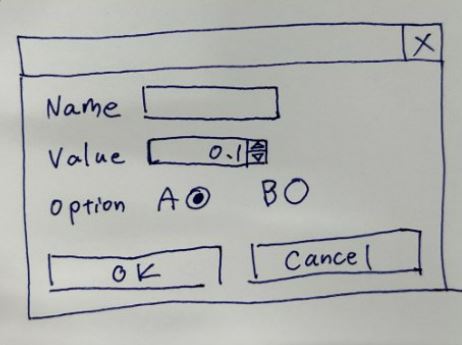 X
Name
Value 0.1
option A B
OK Cancel